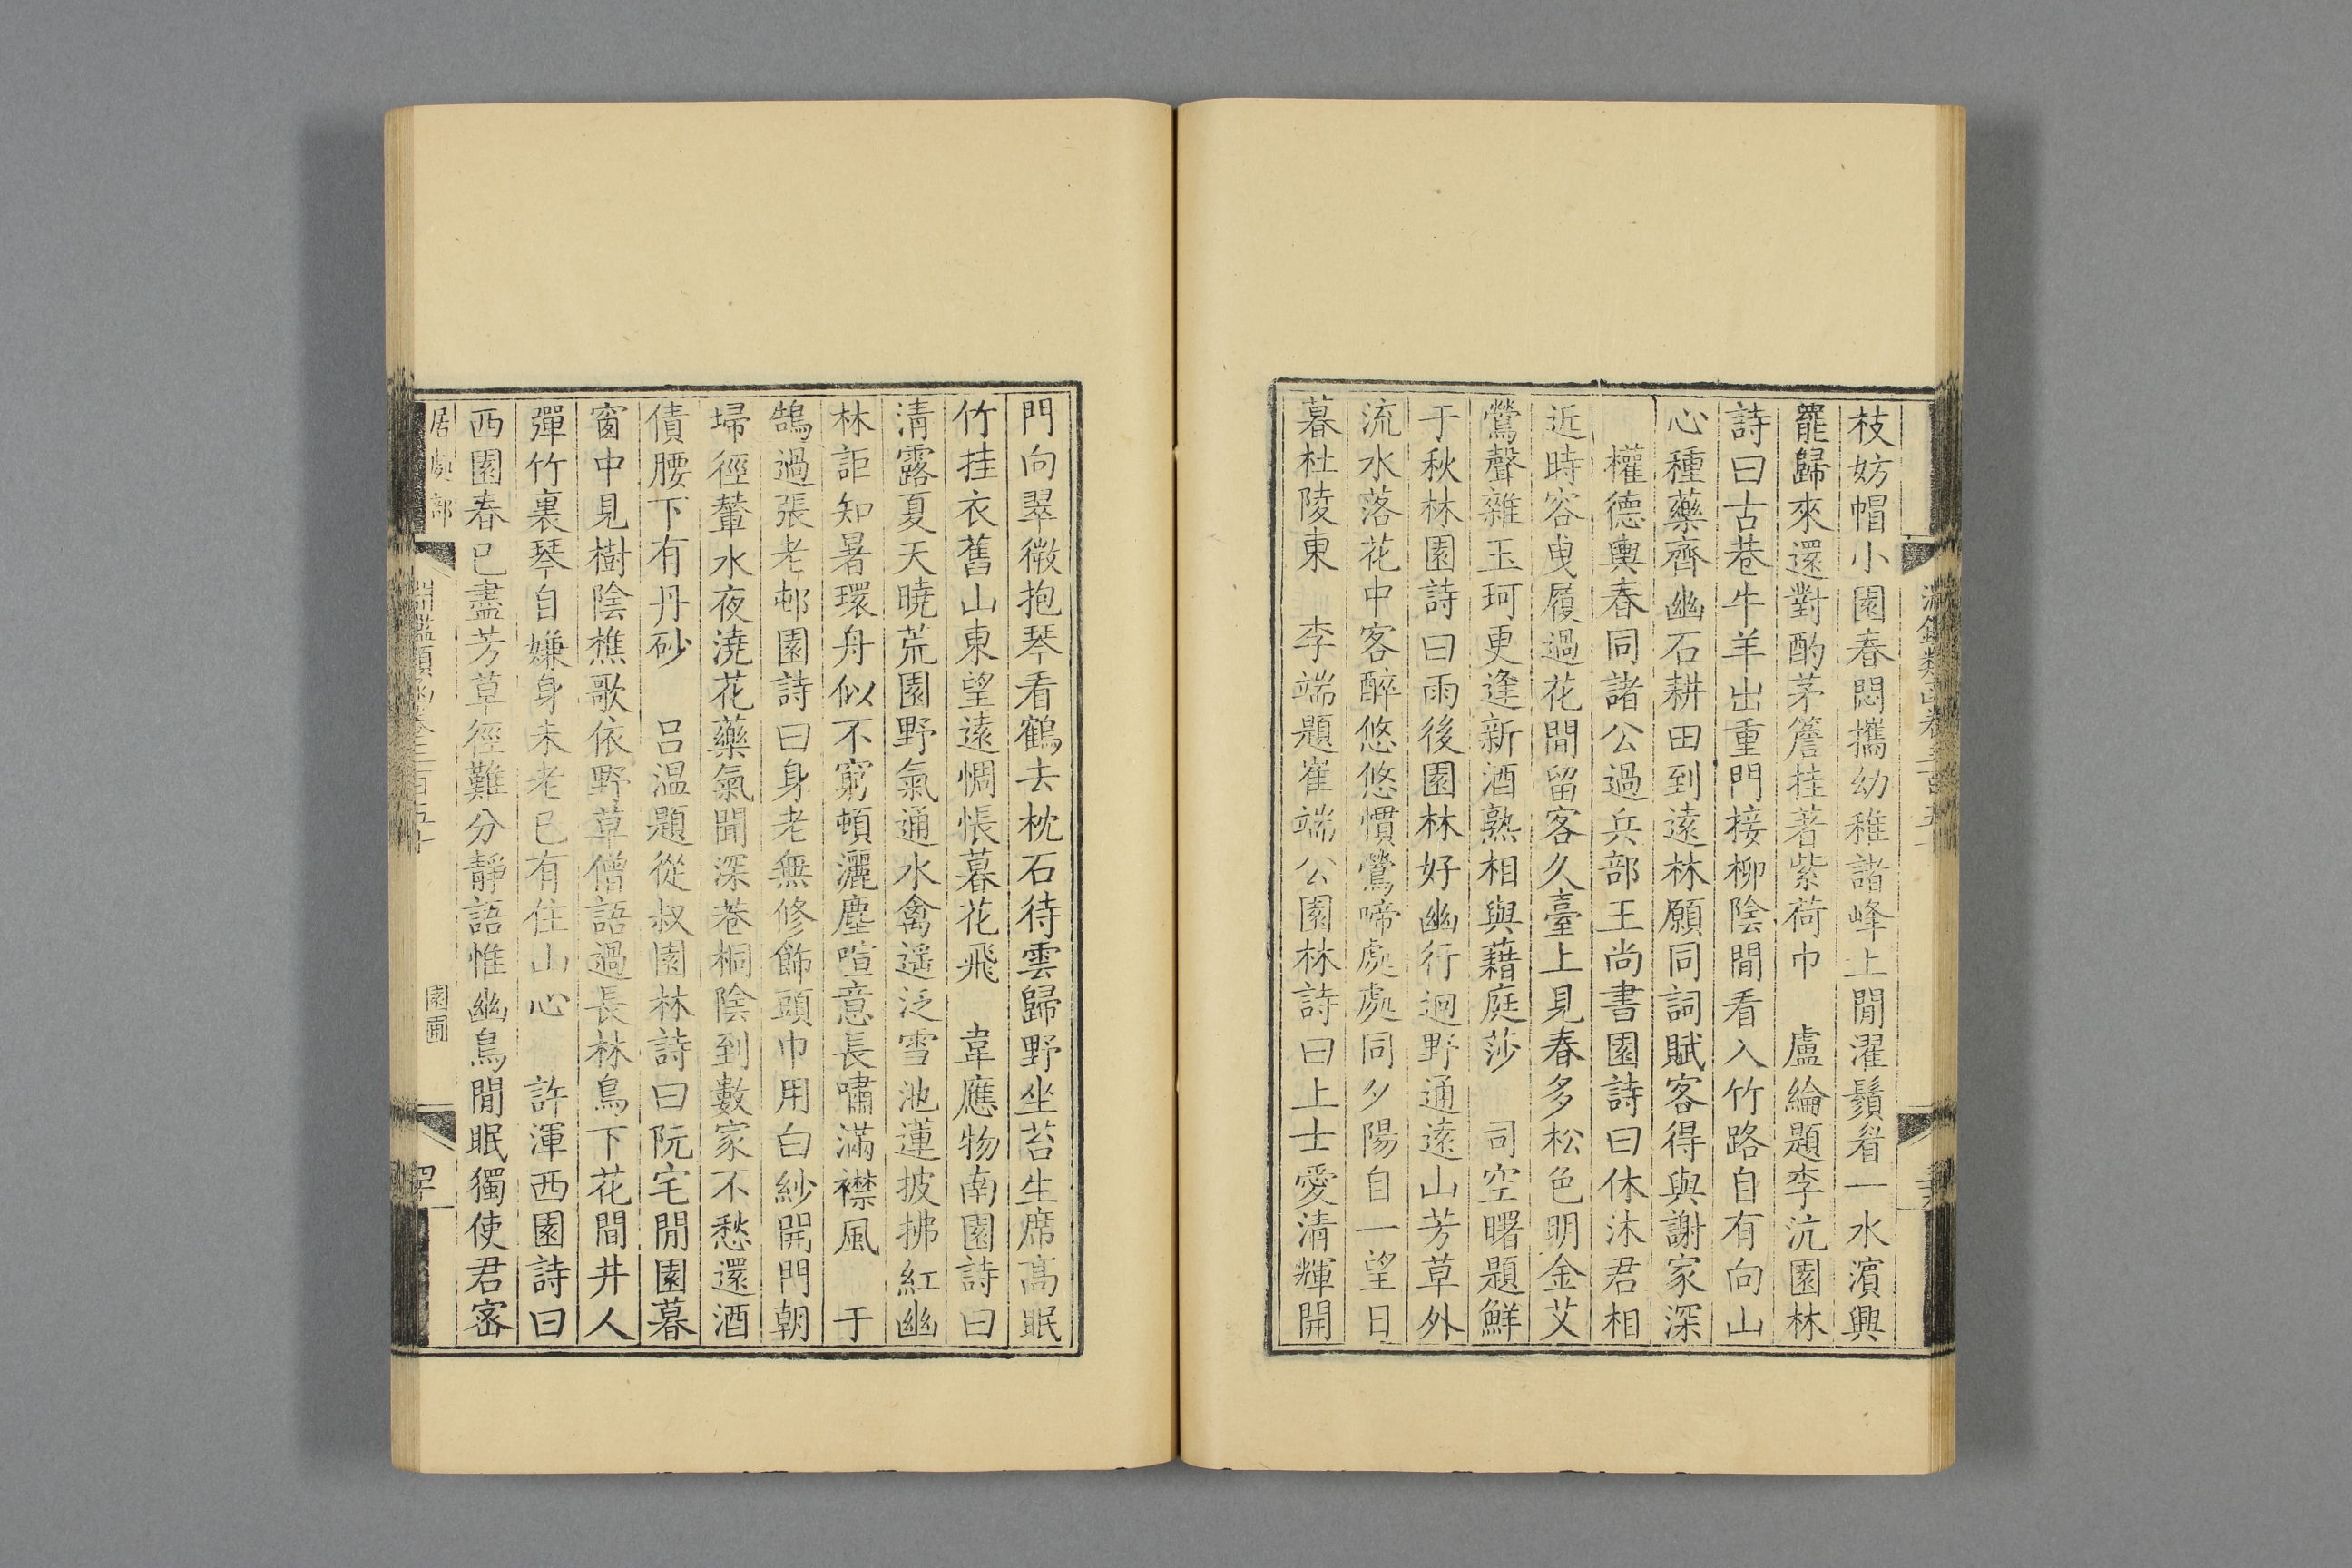 枝妨帽小園春悶攜幼稚諸峰上閒濯鬚看一水濱興
罷歸來還對酌茅簷挂著紫荷巾　盧綸題李沆園林
詩曰古巷牛羊出重門接柳陰閒看入竹路自有向山
心種藥齊幽石耕田到遠林願同詞賦客得與謝家深
權德輿春同諸公過兵部王尚書園詩曰休沐君相
近時容曳履過花間留客久臺上見春多松色明金艾
鶯聲雜玉珂更逢新酒熟相與藉庭莎　司空曙題鮮
于秋林園詩曰雨後園林好幽行迴野通遠山芳草外
流水落花中客醉悠悠慣鶯啼處處同夕陽自一望日
暮杜陵東　李端題崔端公園林詩曰上士愛清輝開
門向翠微抱琴看鶴去枕石待雲歸野坐苔生席高眠
竹挂衣舊山東望遠惆悵暮花飛　韋應物南園詩曰
清露夏天曉荒園野氣通水禽遥泛雪池蓮披拂紅幽
林詎知暑環舟似不窮頓灑塵喧意長嘯滿襟風　于
鵠過張老邨園詩曰身老無修飾頭巾用白紗開門朝
埽徑輦水夜澆花藥氣聞深巷桐陰到數家不愁還酒
債腰下有丹砂　呂溫題從叔園林詩曰阮宅閒園暮
窗中見樹陰樵歌依野草僧語過長林鳥下花間井人
彈竹裏琴自嫌身未老已有住山心　許渾西園詩曰
西園春已盡芳草徑難分靜語惟幽鳥閒眠獨使君密
居處部
淵鑑類函卷三百五十
園圃